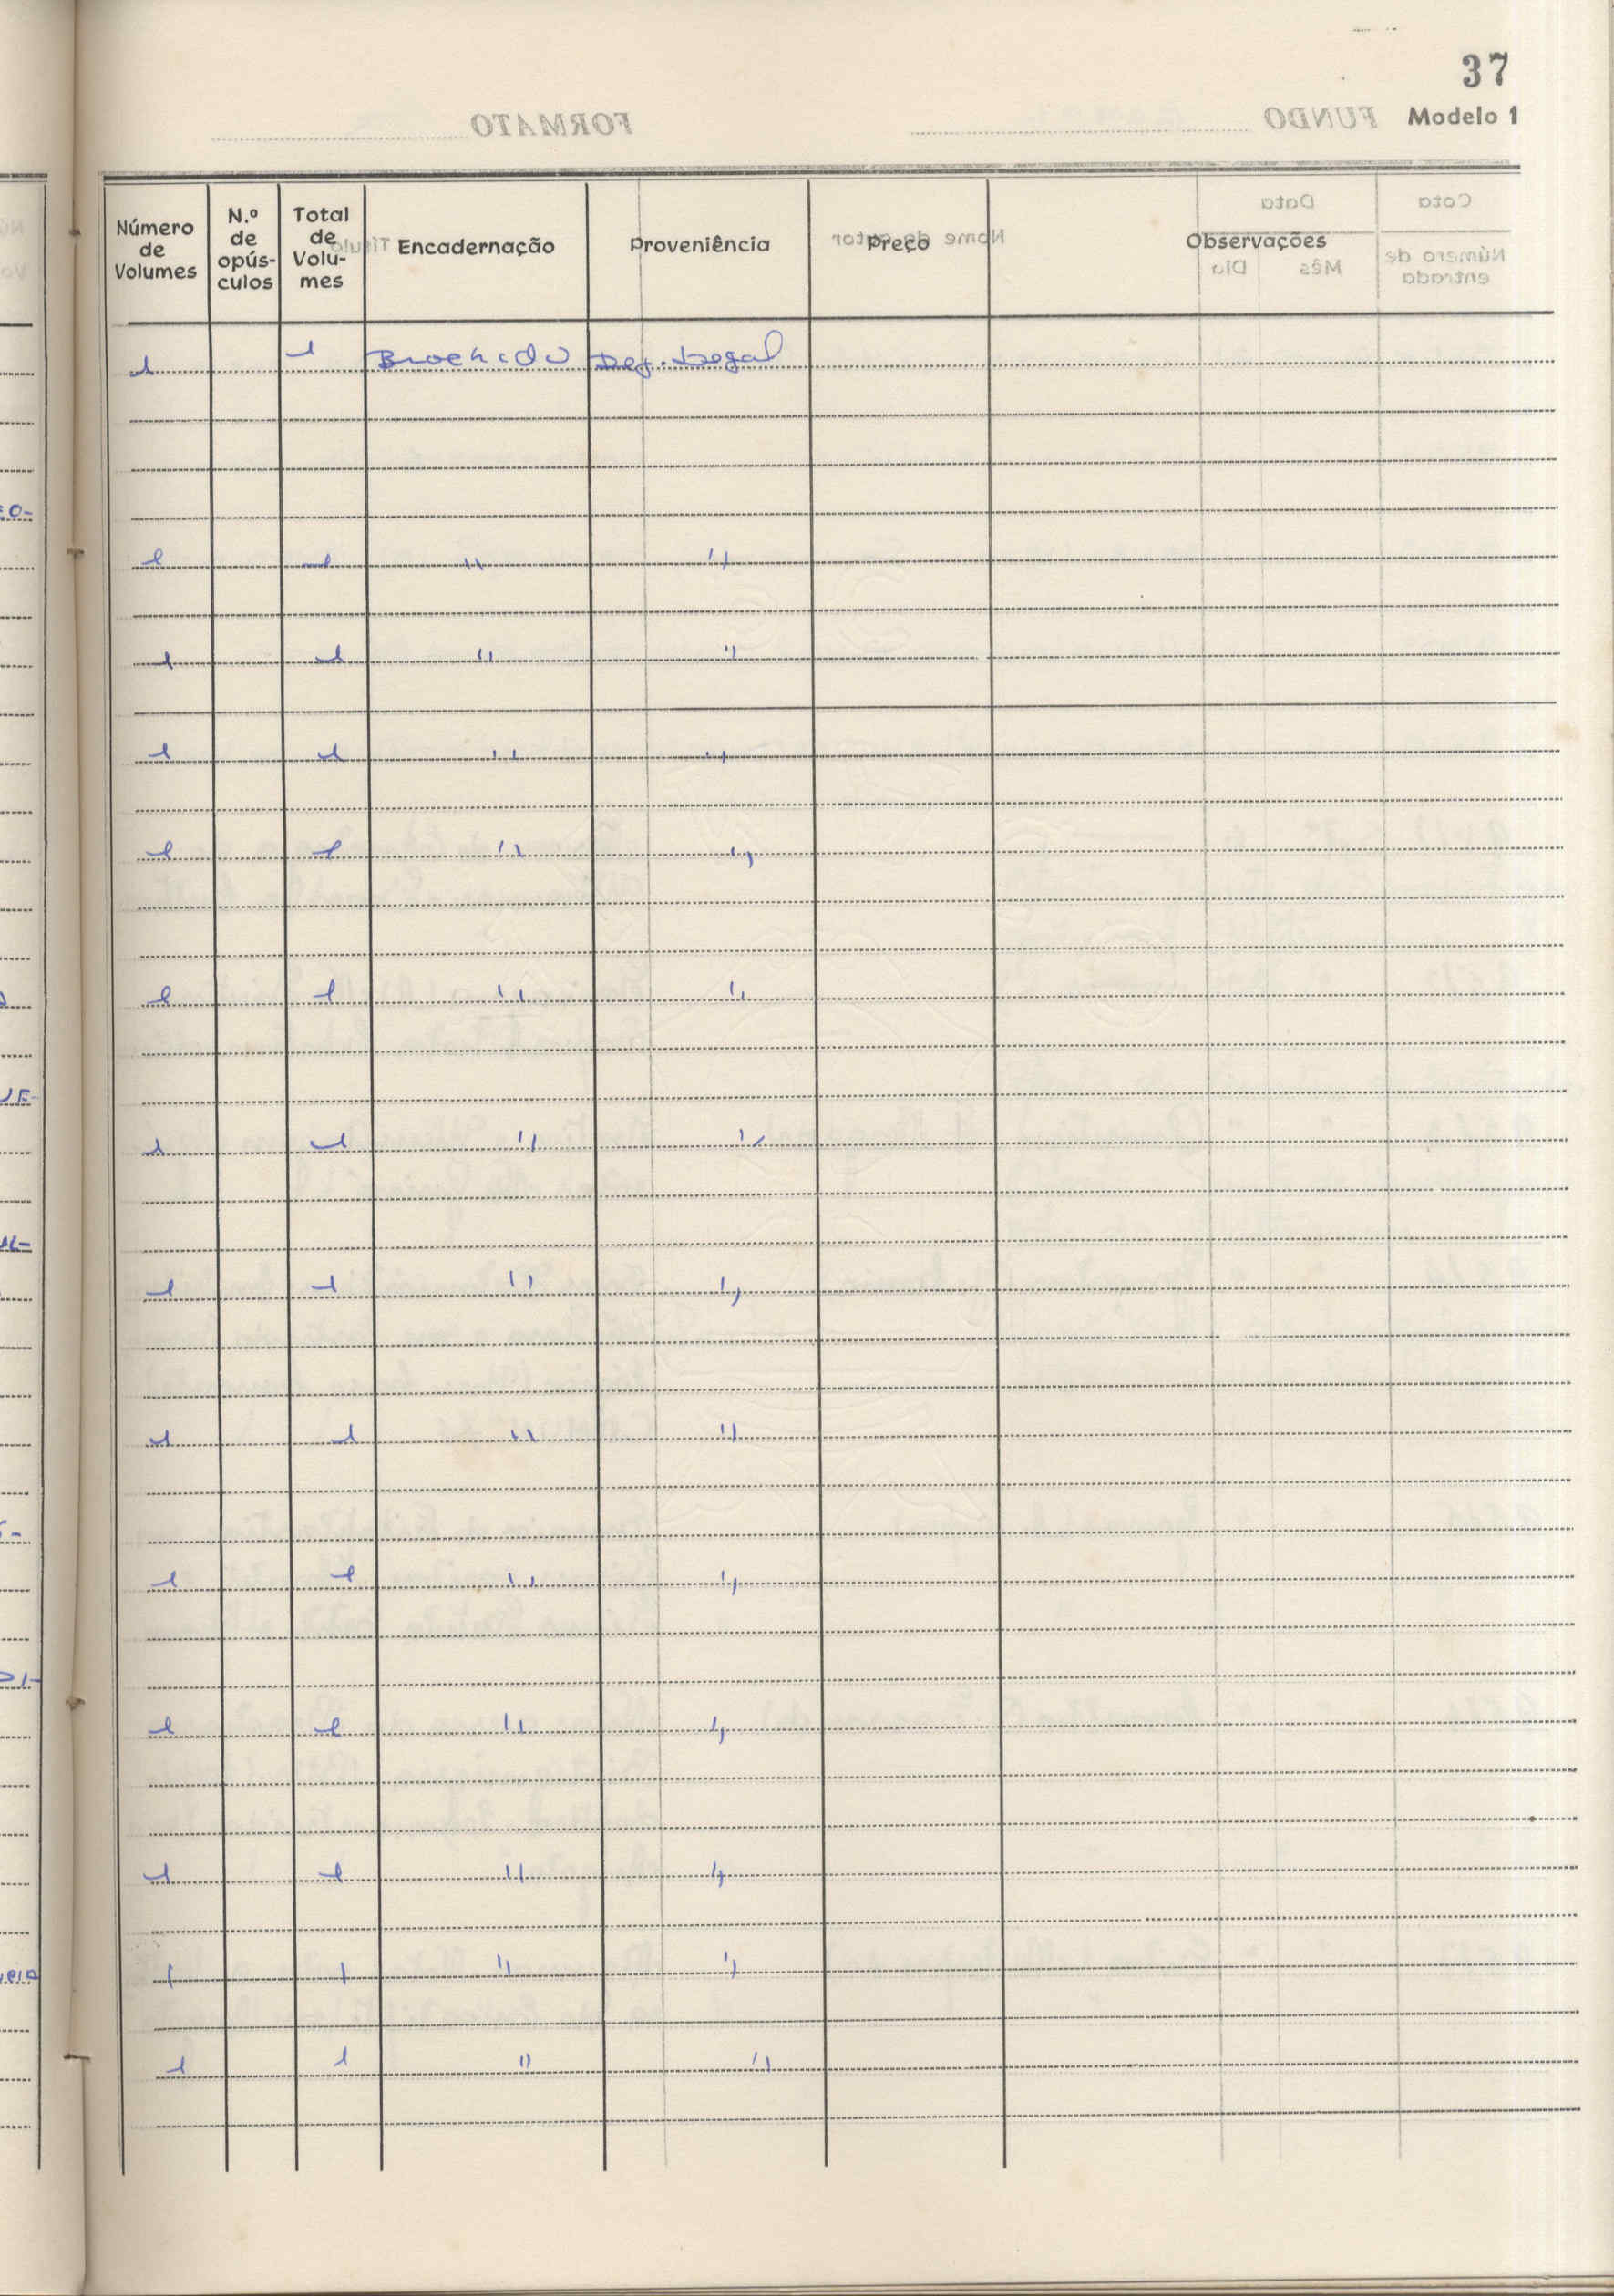 37
Modelo 1
Número de Volumes | N.º de opús-culos | Total de Volu-mes | Encadernação | Proveniência | Preço | Observações
1 1 Brochado Dep. Legal
1 1 " "
1 1 " "
1 1 " "
1 1 " "
1 1 " "
1 1 " "
1 1 " "
1 1 " "
1 1 " "
1 1 " "
1 1 " "
1 1 " "
1 1 " "